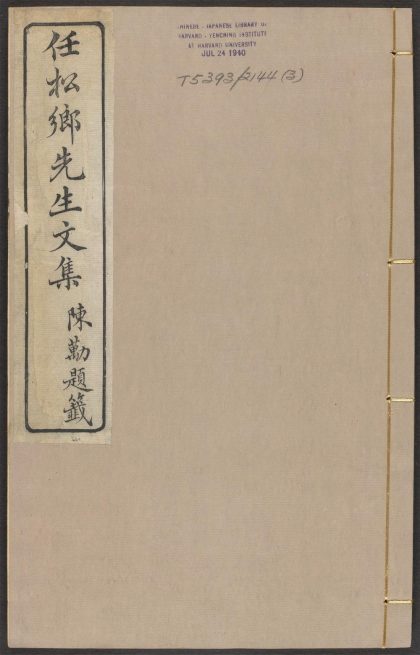 任松鄉先生文集
陳勱題籤
CHINESE - JAPANESE LIBRARY OF
HARVARD - YENCHING INSTITUTE
AT HARVARD UNIVERSITY
JUL 24 1940
T5393/2144(3)